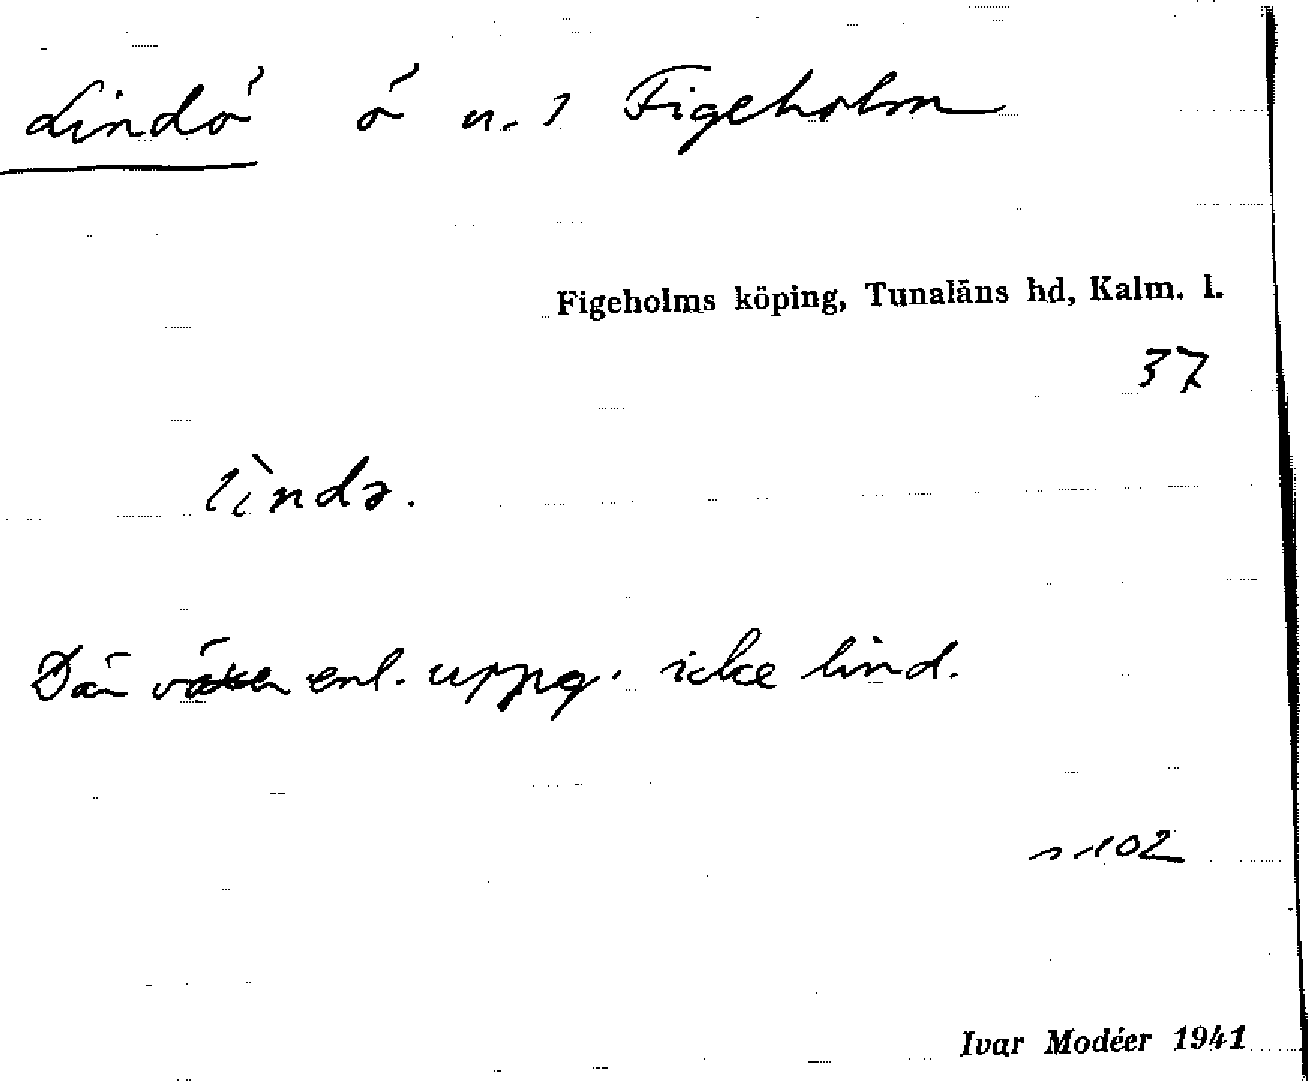 Lindö ö n. ? Figeholm
Figeholms köping, Tunaläns hd, Kalm. l.
37
lìndə.
Där växer enl. uppg. icke lind.
s 102
Ivar Modéer 1941